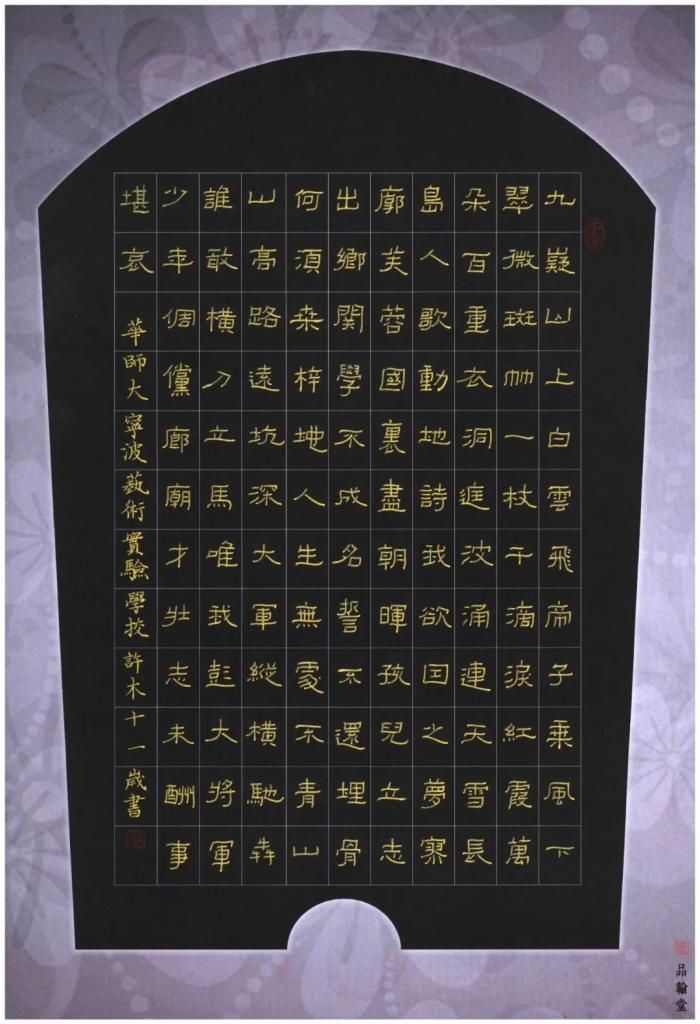 九嶷山上白雲飛帝子乘風下
翠微斑竹一枝千滴淚紅霞萬
朵百重衣洞庭波涌連天雪長
島人歌動地詩我欲因之夢寥
廓芙蓉國裏盡朝暉孩兒立志
出鄉關學不成名誓不還埋骨
何須桑梓地人生無處不青山
山高路遠坑深大軍縱橫馳犇
誰敢橫刀立馬唯我彭大將軍
少年倜儻廊廟才壯志未酬事
堪哀 華師大寧波藝術實驗學校許木十一歲書
品翰堂